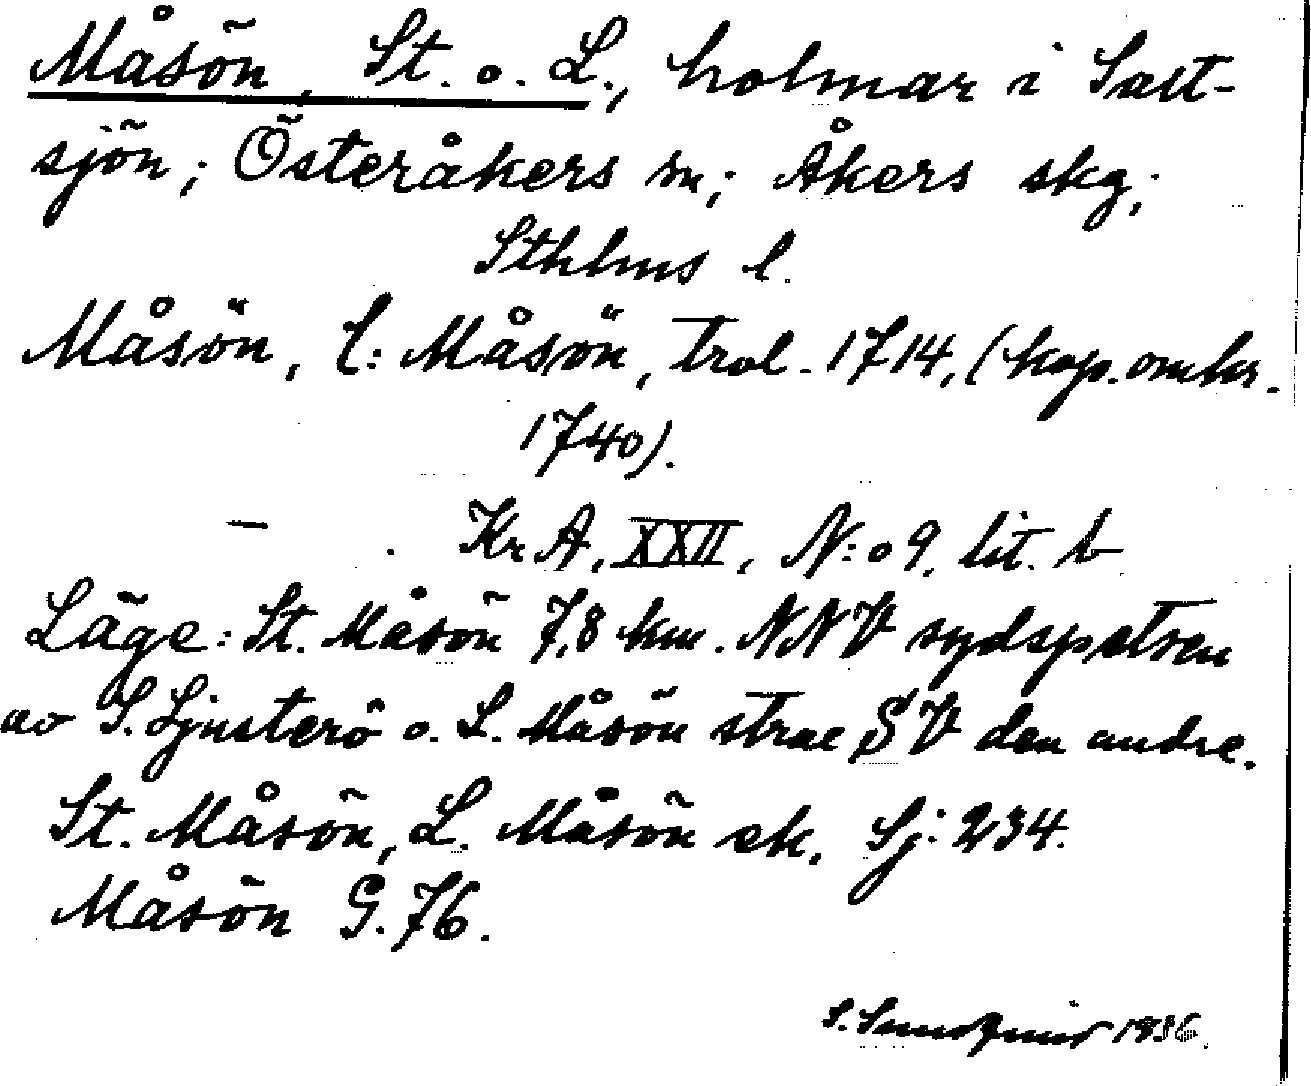 Måsön, St. o. L., holmar i Salt-
sjön; Österåkers sn; Åkers skg;
Sthlms l.
Måsön, l: Måsön, trol. 1714, (kop. omkr.
1740).
— Kr A, XXII, N:o 9. lit. b
Läge: St. Måsön 7,8 km. NNV sydspetsen
av S. Ljusterö o. L. Måsön strax SV den andre.
St. Måsön, L. Måsön ek. Sj: 234.
Måsön G. 76.
S. 1936.